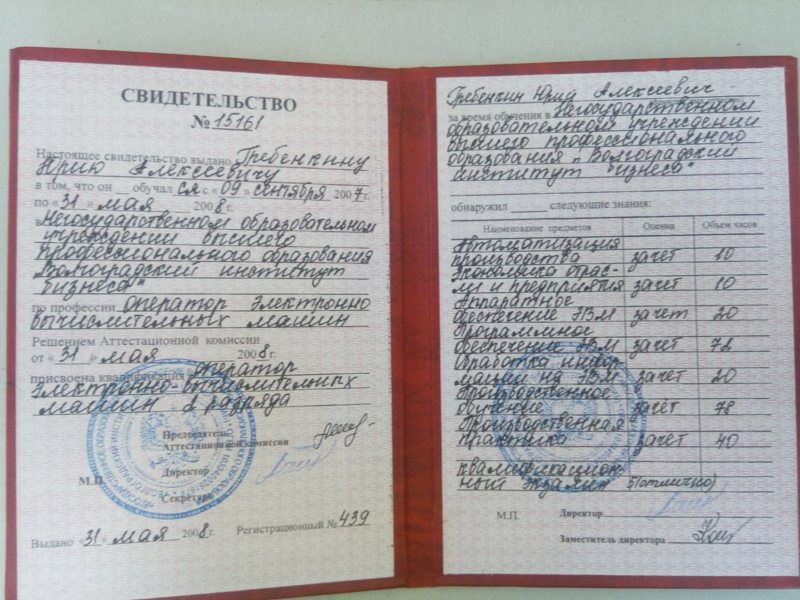 СВИДЕТЕЛЬСТВО
№ 15161
Настоящее свидетельство выдано Гребенкину
Юрию Алексеевичу
в том, что он обучался с «09» сентября 2007г.
по «31» мая 2008г.
в Негосударственном образовательном
учреждении высшего
профессионального образования
„Волгоградский институт
бизнеса"
по профессии оператор электронно
вычислительных машин
Решением Аттестационной комиссии
от «31» мая 2008г.
присвоена квалификация оператор
электронно-вычислительных
машин 2 разряда
Председатель
Аттестационной комиссии
Директор
М.П.
Секретарь
Выдано «31» мая 2008г. Регистрационный № 439
Гребенкин Юрий Алексеевич
за время обучения в Негосударственном
образовательном учреждении
высшего профессионального
образования „Волгоградский
институт бизнеса"
обнаружил следующие знания:
Наименование предметов Оценка Объем часов
Автоматизация
производства зачёт 10
Экономика отрас-
ли и предприятия зачёт 10
Аппаратное
обеспечение ЭВМ зачет 20
Программное
обеспечение ЭВМ зачёт 72
Обработка инфор
мации на ЭВМ зачёт 20
Производственное
обучение зачёт 78
Производственная
практика зачёт 40
квалификацион-
ный экзамен 5(отлично)
М.П. Директор
Заместитель директора